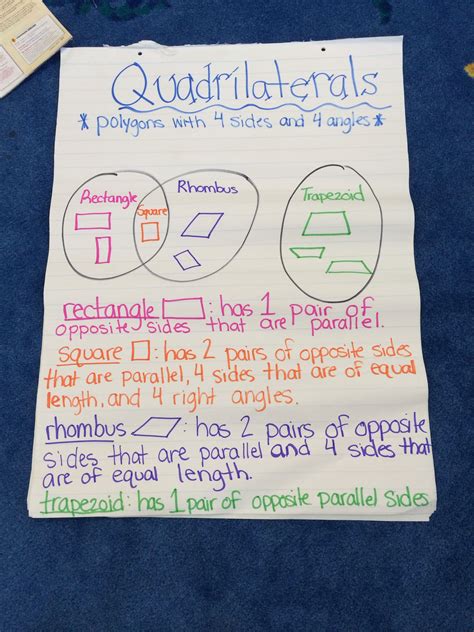 Quadrilaterals
* polygons with 4 sides and 4 angles *
Rectangle
Square
Rhombus
Trapezoid
rectangle : has 1 pair of
opposite sides that are parallel.
square : has 2 pairs of opposite sides
that are parallel, 4 sides that are of equal
length, and 4 right angles.
rhombus : has 2 pairs of opposite
sides that are parallel and 4 sides that
are of equal length.
trapezoid: has 1 pair of opposite parallel sides